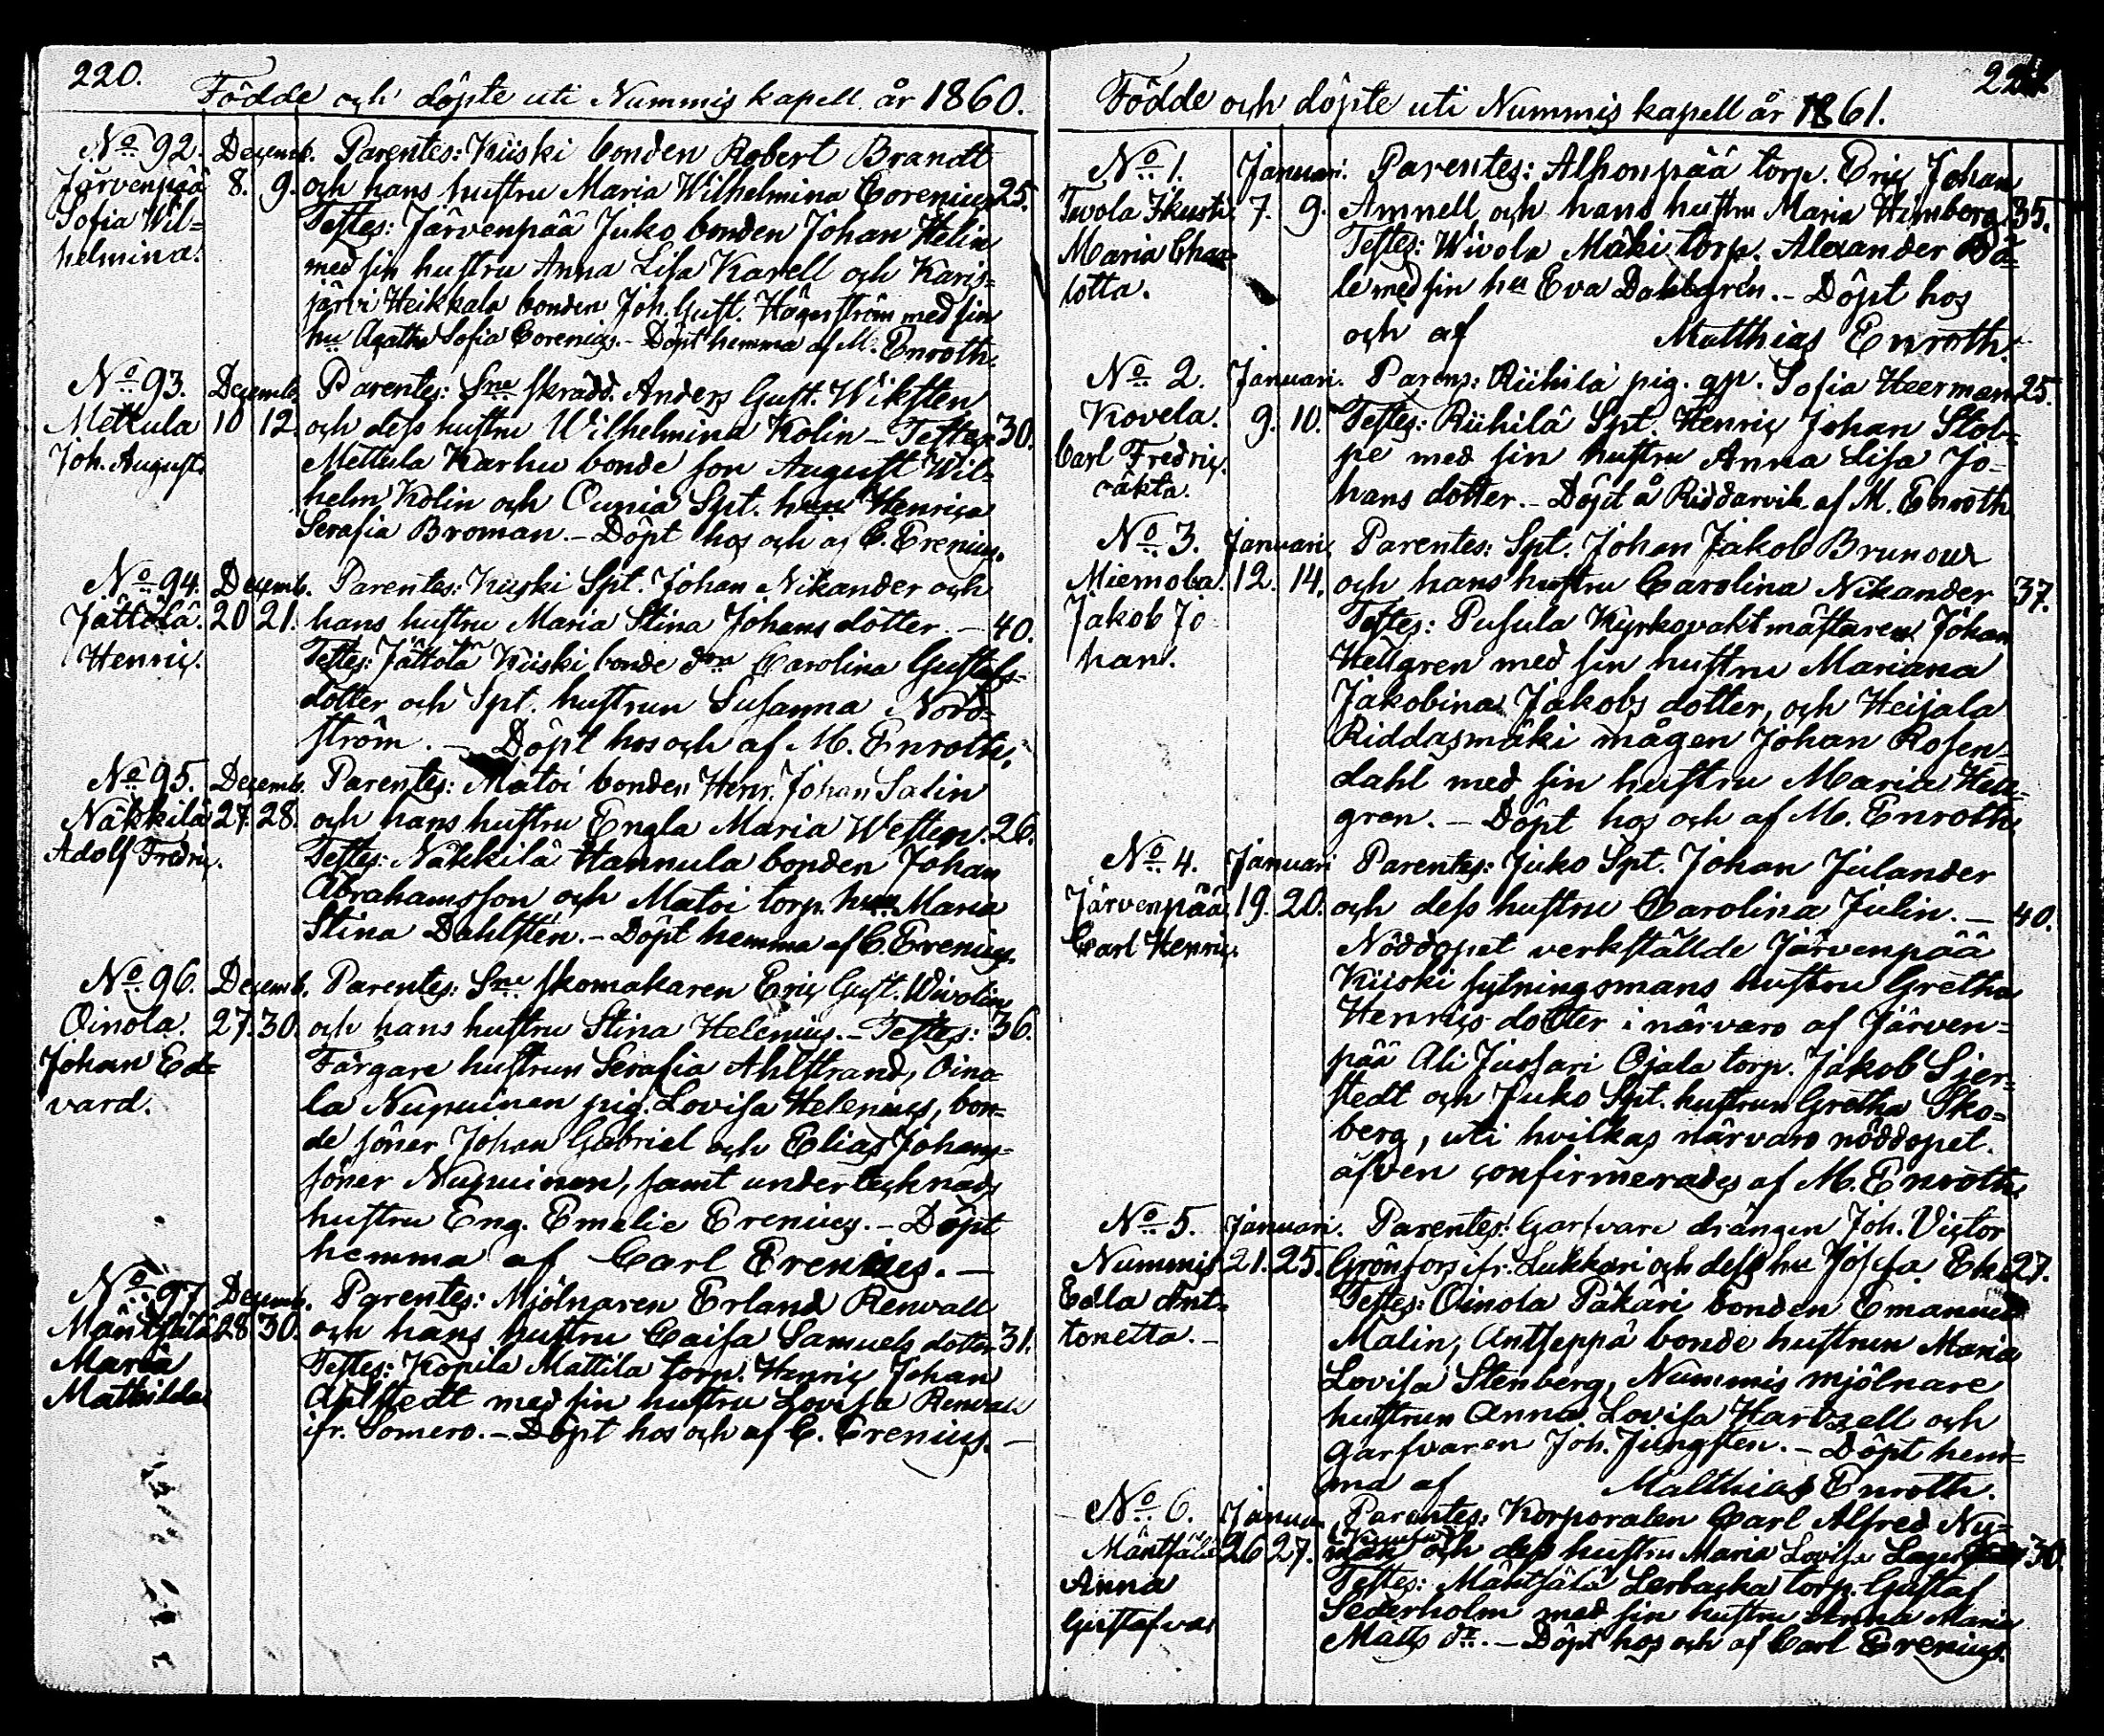 220.
Födde och döpte uti Nummis kapell år 1860.
No 92. Decemb. Parentes: Kiiski bonden Robert Brandt
Järvenpää 8. 9. och hans hustru Maria Wilhelmina Corenius 25.
Sofia Wil= Testes: Järvenpää Juko bonden Johan Helin
helmina. med sin hustru Anna Lisa Karell och Karis=
järvi Heikkala bonden Joh. Gust. Hägerström med sin
hu Agatha Sofia Corenius. - Döpt hemma af M. Enroth.
No 93. Decemb. Parentes: Sne skrädd. Anders Gust. Wiksten
Mettula 10 12. och dess hustru Wilhelmina Kolin - Testes: 30.
Joh. August. Mettula Karhu bonde son August Wil=
helm Kolin och Ounia Spt. hun Henrica
Serafia Broman. - Döpt hos och af C. Erenius.
No 94. Decemb. Parentes: Kiiski Spt. Johan Nikander och
Jättölä. 20 21. hans hustru Maria Stina Johans dotter. - 40.
Henric. Testes: Jättölä Kiiski bonde dra Carolina Gustafs=
dotter och Spt. hustrun Susanna Nord=
ström. - Döpt hos och af M. Enroth.
No 95. Decemb. Parentes: Matoi bonden Henr. Johan Salin
Näkkilä 27. 28. och hans hustru Engla Maria Westen. 26.
Adolf Fredric. Testes: Näkkilä Hannula bonden Johan
Abrahamsson och Matoi torp. hun Maria
Stina Dahlsten. - Döpt hemma af C. Erenius.
No 96. Decemb. Parentes: Sne skomakaren Eric Gust. Wivolin
Oinola. 27. 30. och hans hustru Stina Helenius. - Testes: 36.
Johan Ed= Färgare hustrun Serafia Ahlstrand, Oino=
vard. la Nupuinen pig. Lovisa Helenius, bon=
de söner Johan Gabriel och Elias Johans=
söner Nupuinen, samt undertecknads
hustru Eng. Emelie Erenius. - Döpt
hemma af Carl Erenius. -
No 97. Decemb. Parentes: Mjölnaren Erland Renvall
Mäntsälä 28. 30. och hans hustru Caisa Samuels dotter. 31.
Maria Testes: Kopila Mattila torp. Henric Johan
Mathilda Ahlstedt med sin hustru Lovisa Renvall
ifr. Somero. - Döpt hos och af C. Erenius. -
Födde och döpte uti Nummis kapell år 1861.
No 1. Januari. Parentes: Alhonpää torp. Eric Johan
Tavola Ikusti 7. 9. Amnell och hans hustru Maria Himberg 35.
Maria Char= Testes: Wivola Mäki torp. Alexander Bä=
lotta. le med sin hu Eva Dahlgrén. - Döpt hos
och af Matthias Enroth.
No 2. Januari. Parens: Riihilä pig. qp. Sofia Heerman 25.
Kovela. 9. 10. Testes: Riihilä Spt. Henric Johan Stob=
Carl Fredric. pe med sin hustru Anna Lisa Jo=
oäkta. hans dotter. - Döpt å Riddarvik af M. Enroth
No 3. Januari Parentes: Spt. Johan Jakob Brunour
Miemola. 12. 14. och hans hustru Carolina Nikander 37.
Jakob Jo= Testes: Pusula Kyrkovaktmästaren Johan
han. Hellgren med sin hustru Mariana
Jakobina Jakobs dotter, och Heijala
Riddasmäki mågen Johan Rosen=
dahl med sin hustru Maria Hell=
gren. - Döpt hos och af M. Enroth
No 4. Januari Parentes: Juko Spt. Johan Julander
Järvenpää 19. 20. och dess hustru Carolina Julin. - 40.
Carl Henric. Nöddopet verkställde Järvenpää
Kiiski sytningsmans hustru Gretha
Henrics dotter i närvaro af Järven=
pää Ali Jussari Ojala torp. Jakob Sjer=
stedt och Juko Spt. hustrun Gretha Sko=
berg, uti hvilkas närvaro nöddopet
äfven confirmerades af M. Enroth.
No 5. Januari. Parentes: Garfvare drängen Joh. Victor
Nummis 21. 25. Grönfors ifr. Lukkari och dess hu Josefa Ek 27.
Edla Ant= Testes: Oinola Päkäri bonden Emanuel
tonetta. - Malin, Antseppä bonde hustrun Maria
Lovisa Stenberg, Nummis mjölnare
hustrun Anna Lovisa Hartzell och
garfvaren Joh. Jungsten. - Döpt hem=
ma af Matthias Enroth.
No 6. Januari Parentes: Korporalen Carl Alfred Ny=
Mäntsälä 26 27. man och dess hustru Maria Lovisa 30.
Anna Testes: Mäntsälä Lerbacka torp. Gustaf
Gustafva Sederholm med sin hustru Anna Maria
Matts dr. - Döpt hos och af Carl Erenius.